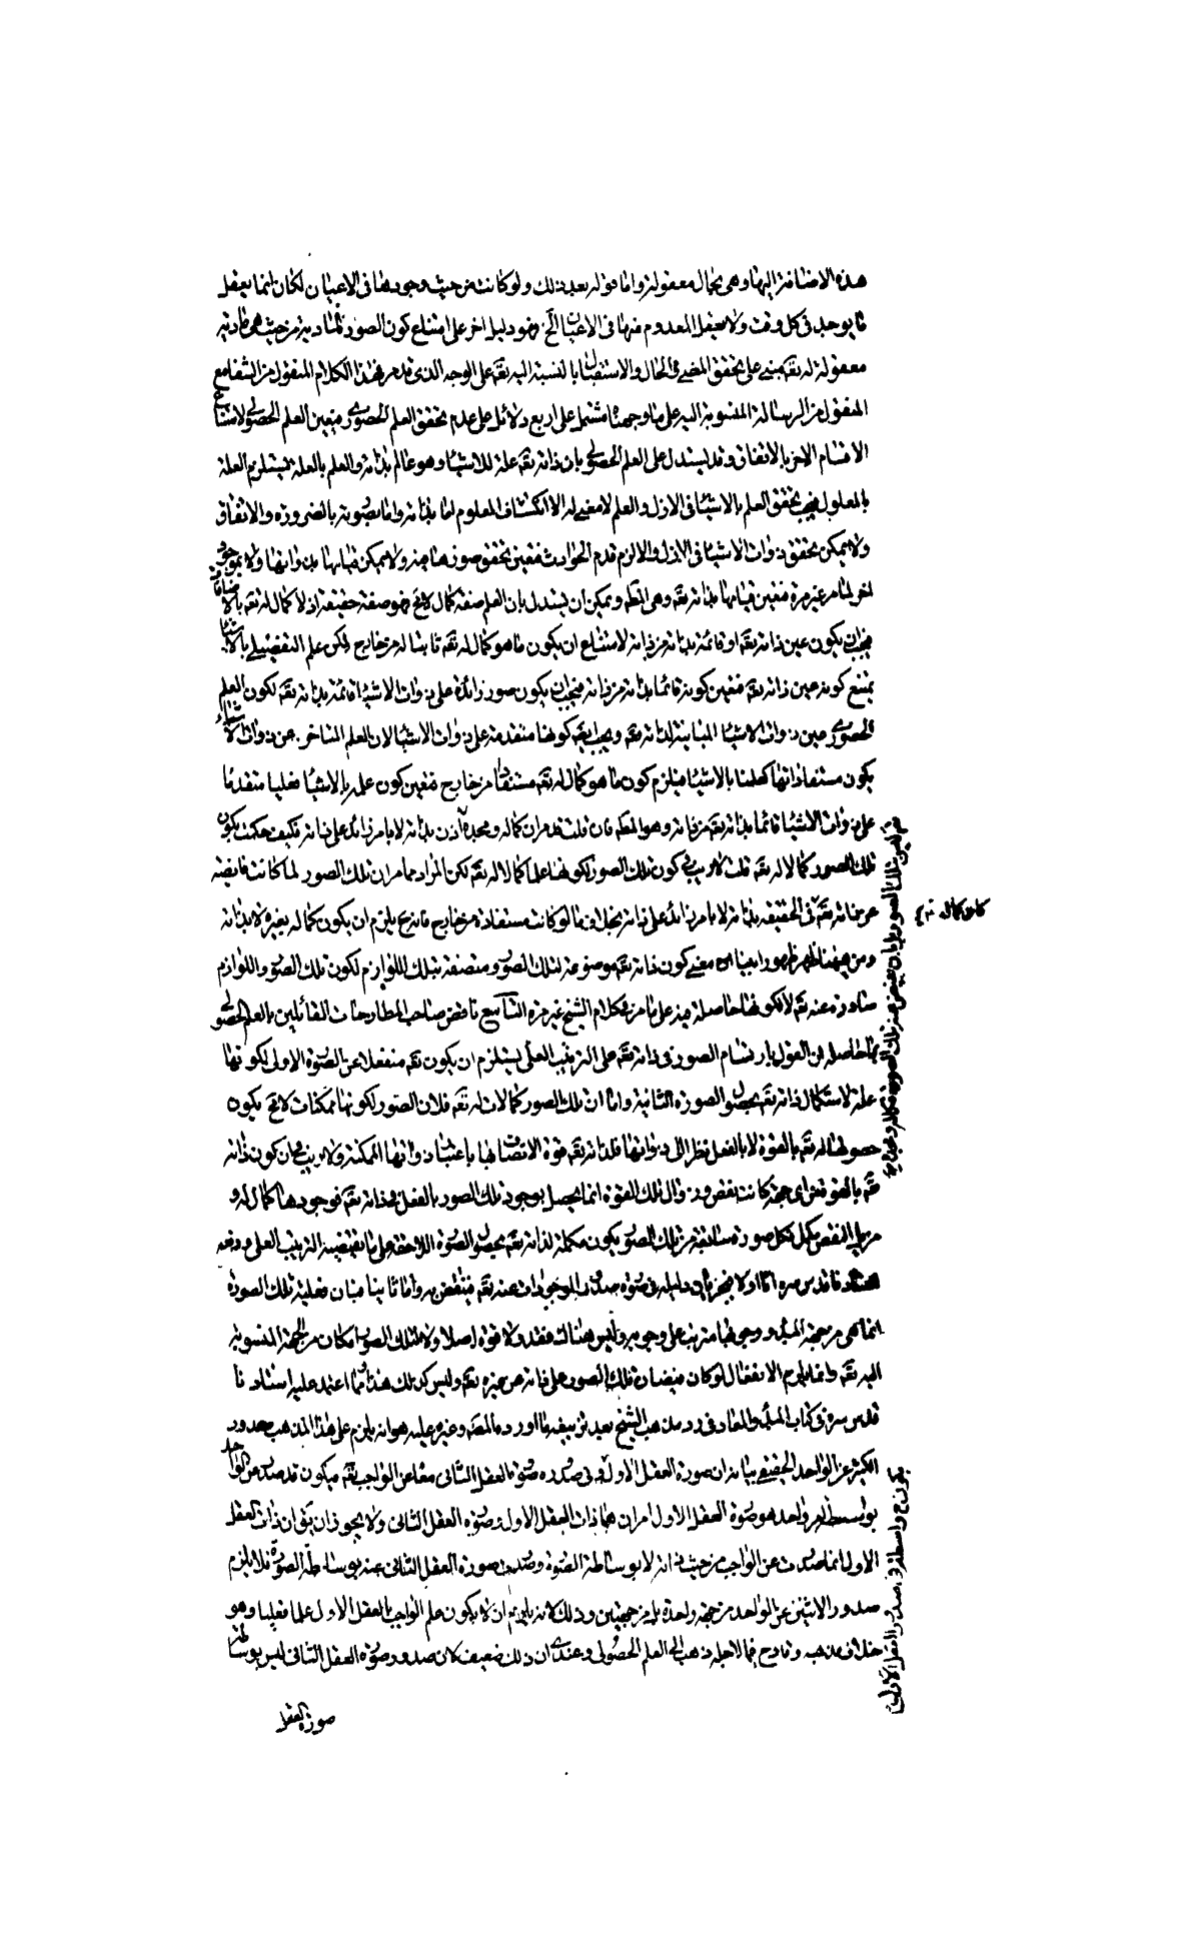 هذه الاضافة اليها وهى بحال معقولة واما قوله بعد ذلك ولو كانت من حيث وجودها فى الاعيان لكان انما يعقل
ما يوجد فى كل وقت ولا يعقل المعدوم منها فى الاعيان الخ فهو دليل اخر على امتناع كون الصور المادية من حيث هى مادية
معقولة له تقه مبنى على تحقق المضى والحال والاستقبال بالنسبة اليه تقه على الوجه الذى قدمر فهذا الكلام المنقول من الشفا مع
المنقول من الرسالة المنسوبة اليه على ما وجهنا مشتمل على اربع دلائل على عدم تحقق العلم الحضورى فتعين العلم الحصولى لامتناع
الاقسام الاخر بالاتفاق وقد يستدل على العلم الحصولى بان ذاته تقه علة للاشيا وهو عالم بذاته والعلم بالعلة يستلزم العلم
بالمعلول فيجب تحقق العلم بالاشيا فى الازل والعلم لا معنى له الا انكشاف المعلوم اما بذاته واما بصورته بالضرورة والاتفاق
ولا يمكن تحقق ذوات الاشيا فى الازل والا لزم قدم الحوادث فتعين تحقق صورها فيه ولا يمكن قيامها بذواتها ولا بموجود
اخر لما مر غير مرة فتعين قيامها بذاته تقه وهى المطه ويمكن ان يستدل بان العلم صفة كمال لا مح فهو صفة حقيقة اذ لا كمال له تقه بالاضافات
فيجب ان يكون عين ذاته تقه او قائمة بذاته من ذاته لامتناع ان يكون ما هو كمال له تقه ثابتا له من خارج لكن علمه التفصيلى بالاشيا
يمتنع كونه عين ذاته تقه فتعين كونه قائما بذاته من ذاته فيجب ان يكون صور زائدة على ذوات الاشيا قائمة بذاته تقه لكون العلم
الحضورى عين ذوات الاشيا المباينة لذاته تقه ويجب ايضه كونها متقدمة على ذوات الاشيا لان العلم المتاخر عن ذوات الاشياء
يكون مستفادا منها كعلمنا بالاشيا فيلزم كون ما هو كمال له تقه مستفادا من خارج فتعين كون علمه بالاشيا فعليا متقدما
على ذوات الاشيا قائما بذاته تقه من ذاته وهو المطه فان قلت قدمر ان كماله ومجده اذن بذاته لا بامر زائد على ذاته فكيف حكمت بكون
تلك الصور كمالا له تقه قلت لا ريب فى كون تلك الصور لكونها علما كمالا له تقه لكن المراد مما مر ان تلك الصور لما كانت فايضة
عن ذاته تقه فى الحقيقه بذاته لا بامر زائد على ذاته بخلاف ما لو كانت مستفادة من خارج فانه ح يلزم ان يكون كماله بغيره لا بذاته
ومن ههنا ظهر ظهورا بينا ان معنى كون ذاته تقه موصوفة لتلك الصور ومتصفة بتلك اللوازم لكون تلك الصور واللوازم
صادرة عنه تقه لا لكونها حاصلة فيه على ما مر فى كلام الشيخ غير مرة التاسع ناقض صاحب المطارحات القائلين بالعلم الحصولى
بما حاصله ان القول بارتسام الصور فى ذاته تقه على الترتيب العلى يستلزم ان يكون تقه منفعلا عن الصورة الاولى لكونها
علة لاستكمال ذاته تقه بحصول الصورة الثانية واما ان تلك الصور كمالات له تقه فلان الصور لكونها ممكنات لا مح يكون
حصولها له تقه بالقوة لا بالفعل نظرا الى ذواتها فلذاته تقه قوة الاتصاف بها باعتبار ذواتها الممكنة ولا ريب فى ان كون ذاته
تقه بالقوة من اى جهة كانت نقص وزوال تلك القوة انما يحصل بوجود تلك الصور بالفعل فى ذاته تقه فوجودها كمال له و
مزيل النقص مكمل فكل صورة سابقة من تلك الصور يكون مكملة لذاته تقه بحصول الصورة اللاحقة على ما يقتضيه الترتيب العلى ودفعه
استادنا قدس سره اما اولا فبجريان دليله فى صورة صدور الموجودات عنه تقه فينتقض به واما ثانيا فبان فعلية تلك الصورة
انما هى من جهة المبدء ووجوبها مترتب على وجوبه وليس هنالك فقد ولا قوة اصلا ولا لتلك الصور امكان من الجهة المنسوبة
اليه تقه وانما يلزم الانفعال لو كان فيضان تلك الصور على ذاته من غيره تقه وليس كذلك هذا ومما اعتمد عليه استادنا
قدس سره فى كتاب المبدء والمعاد فى رد مذهب الشيخ بعد تزييف ما اورده المصه وغيره عليه هو انه يلزم على هذا المذهب صدور
الكثير عن الواحد الحقيقى بيانه ان صورة العقل الاول فى صدوره صورة العقل الثانى معا عن الواجب تقه فيكون قد صدر من الواحد
بواسطة امر واحد هو صورة العقل الاول امران هما ذات العقل الاول وصورة العقل الثانى ولا يجوز ان يقه ان ذات العقل
الاول انما صدرت عن الواجب من حيث ذاته لا بوساطة الصورة وصدرت صورة العقل الثانى عنه بوساطة الصورة فلا يلزم
صدور الاثنين عن الواحد من جهة واحدة بل من جهتين وذلك لانه يلزم ان لا يكون علم الواجب بالعقل الاول علما فعليا وهو
خلاف مذهبه وقادح فيما لاجله ذهب الى العلم الحصولى وعندى ان ذلك ضعيف لان صدور صورة العقل الثانى ليس بوساطة
صورة العقل